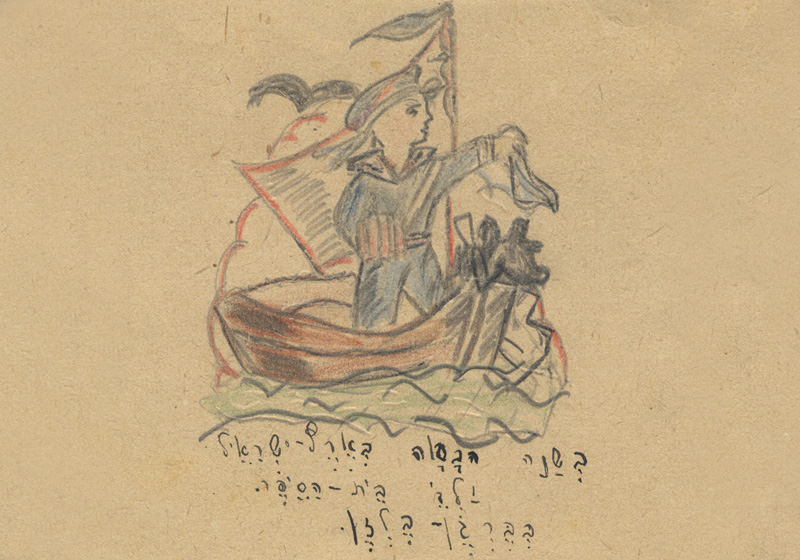 בְּשָׁנָה הַבָּאָה בְּאֶרֶץ-יִשְׂרָאֵל
יַלְדֵי בֵּית-הַסֵפֶר
בְּבֶּרְגֶן-בֶּלְזֶן.